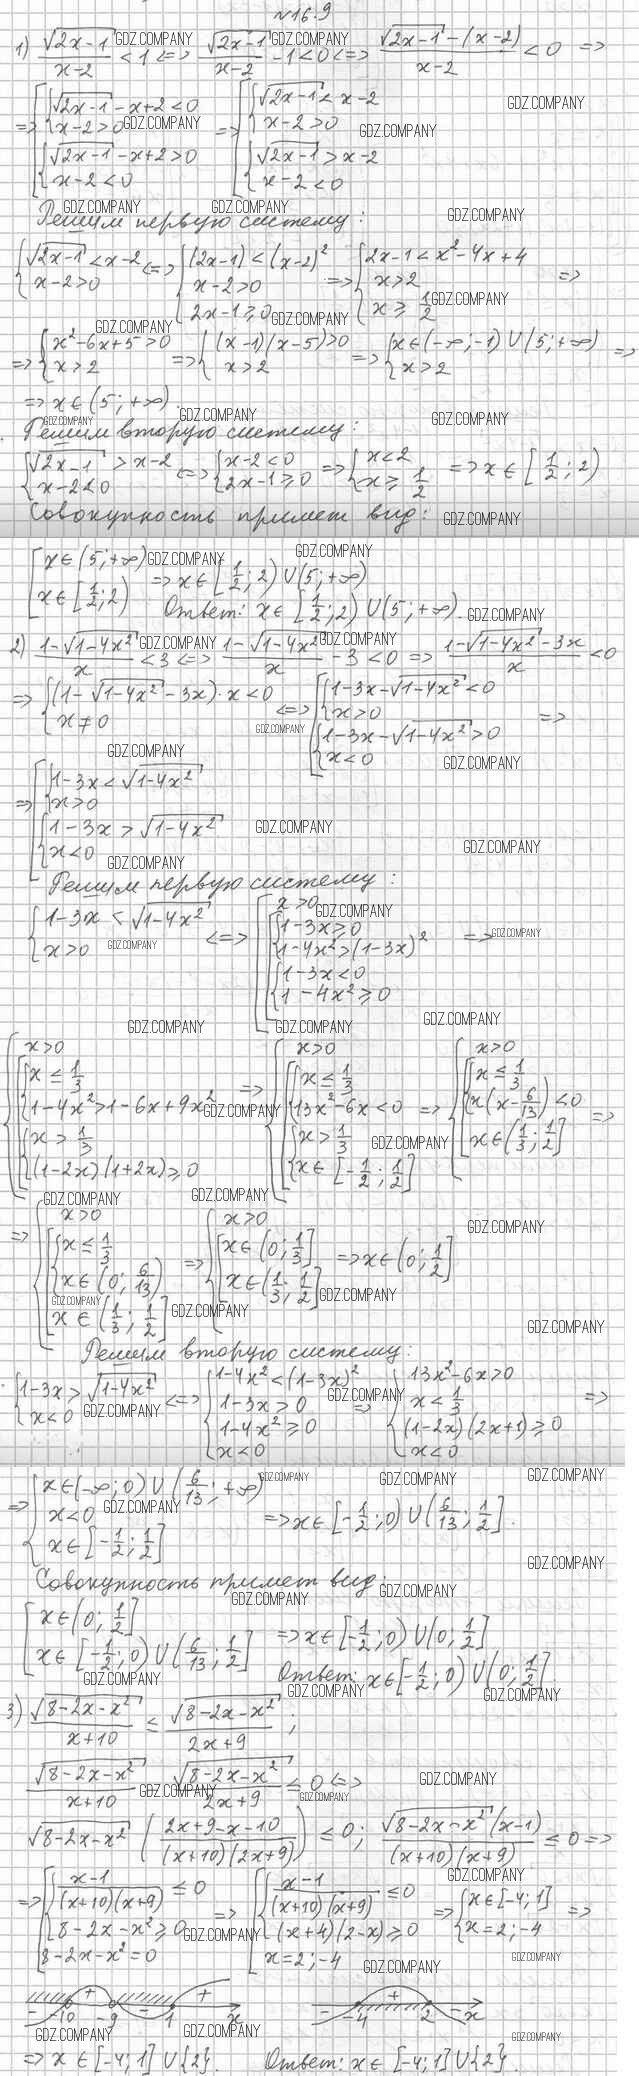 №16.9
1) √(2x-1)/(x-2) < 1 <=> √(2x-1)/(x-2) - 1 < 0 <=> (√(2x-1) - (x-2))/(x-2) < 0 =>
=> [ { √(2x-1) - x + 2 < 0 ; x-2 > 0 ; { √(2x-1) - x + 2 > 0 ; x-2 < 0 => [ { √(2x-1) < x-2 ; x-2 > 0 ; { √(2x-1) > x-2 ; x-2 < 0
Решим первую систему:
{ √(2x-1) < x-2 ; x-2 > 0 <=> { (2x-1) < (x-2)² ; x-2 > 0 ; 2x-1 ≥ 0 => { 2x-1 < x²-4x+4 ; x > 2 ; x ≥ 1/2 =>
=> { x²-6x+5 > 0 ; x > 2 => { (x-1)(x-5) > 0 ; x > 2 => { x∈(-∞;-1)∪(5;+∞) ; x > 2 =>
=> x∈(5;+∞).
Решим вторую систему:
{ √(2x-1) > x-2 ; x-2 < 0 <=> { x-2 < 0 ; 2x-1 ≥ 0 => { x < 2 ; x ≥ 1/2 => x∈[1/2;2)
Совокупность примет вид:
[ x∈(5;+∞) ; x∈[1/2;2) => x∈[1/2;2)∪(5;+∞)
Ответ: x∈[1/2;2)∪(5;+∞).
2) (1-√(1-4x²))/x < 3 <=> (1-√(1-4x²))/x - 3 < 0 => (1-√(1-4x²)-3x)/x < 0
=> { (1-√(1-4x²)-3x)·x < 0 ; x ≠ 0 <=> [ { 1-3x-√(1-4x²) < 0 ; x > 0 ; { 1-3x-√(1-4x²) > 0 ; x < 0 =>
=> [ { 1-3x < √(1-4x²) ; x > 0 ; { 1-3x > √(1-4x²) ; x < 0
Решим первую систему:
{ 1-3x < √(1-4x²) ; x > 0 <=> { x > 0 ; [ { 1-3x ≥ 0 ; 1-4x² > (1-3x)² ; { 1-3x < 0 ; 1-4x² ≥ 0 =>
{ x > 0 ; [ { x ≤ 1/3 ; 1-4x² > 1-6x+9x² ; { x > 1/3 ; (1-2x)(1+2x) ≥ 0 => { x > 0 ; [ { x ≤ 1/3 ; 13x²-6x < 0 ; { x > 1/3 ; x∈[-1/2;1/2] => { x > 0 ; [ { x ≤ 1/3 ; x(x-6/13) < 0 ; x∈(1/3;1/2] =>
=> { x > 0 ; [ { x ≤ 1/3 ; x∈(0;6/13) ; x∈(1/3;1/2] => { x > 0 ; [ x∈(0;1/3] ; x∈(1/3;1/2] => x∈(0;1/2]
Решим вторую систему:
{ 1-3x > √(1-4x²) ; x < 0 <=> { 1-4x² < (1-3x)² ; 1-3x > 0 ; 1-4x² ≥ 0 ; x < 0 => { 13x²-6x > 0 ; x < 1/3 ; (1-2x)(2x+1) ≥ 0 ; x < 0 =>
=> { x∈(-∞;0)∪(6/13;+∞) ; x < 0 ; x∈[-1/2;1/2] => x∈[-1/2;0)∪(6/13;1/2].
Совокупность примет вид:
[ x∈(0;1/2] ; x∈[-1/2;0)∪(6/13;1/2] => x∈[-1/2;0)∪(0;1/2]
Ответ: x∈[-1/2;0)∪(0;1/2]
3) √(8-2x-x²)/(x+10) ≤ √(8-2x-x²)/(2x+9);
√(8-2x-x²)/(x+10) - √(8-2x-x²)/(2x+9) ≤ 0 <=>
√(8-2x-x²) ((2x+9-x-10)/((x+10)(2x+9))) ≤ 0; √(8-2x-x²)(x-1)/((x+10)(x+9)) ≤ 0 =>
=> [ { (x-1)/((x+10)(x+9)) ≤ 0 ; 8-2x-x² ≥ 0 ; 8-2x-x² = 0 => [ { (x-1)/((x+10)(x+9)) ≤ 0 ; (x+4)(2-x) ≥ 0 ; x=2;-4 => { x∈[-4;1] ; x=2;-4 =>
- -10 + -9 - 1 + x - -4 + 2 - x
=> x∈[-4;1]∪{2}. Ответ: x∈[-4;1]∪{2}.
GDZ.COMPANY